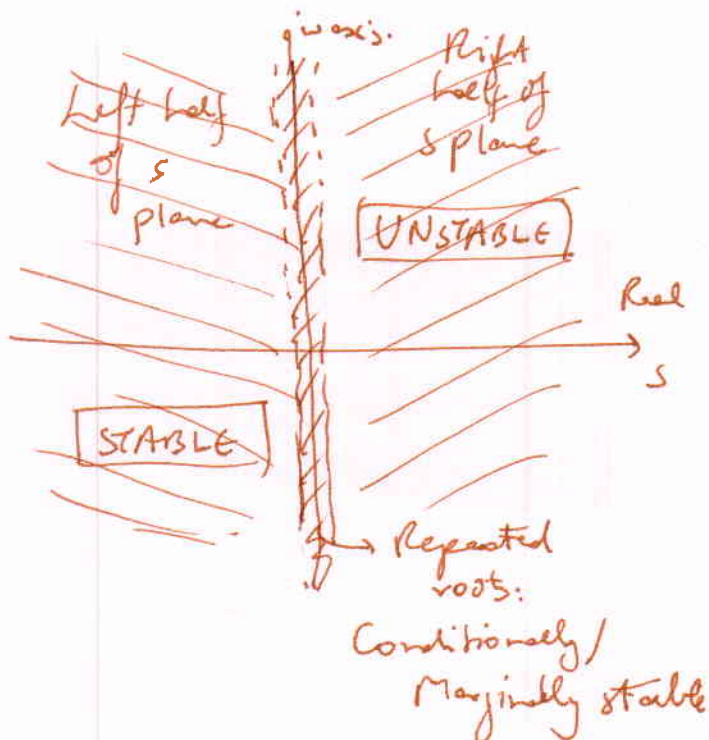 jw axis.
Left half
of s
plane
Right
half of
s plane
UNSTABLE
Real
s
STABLE
Repeated
roots:
Conditionally/
Marginally stable